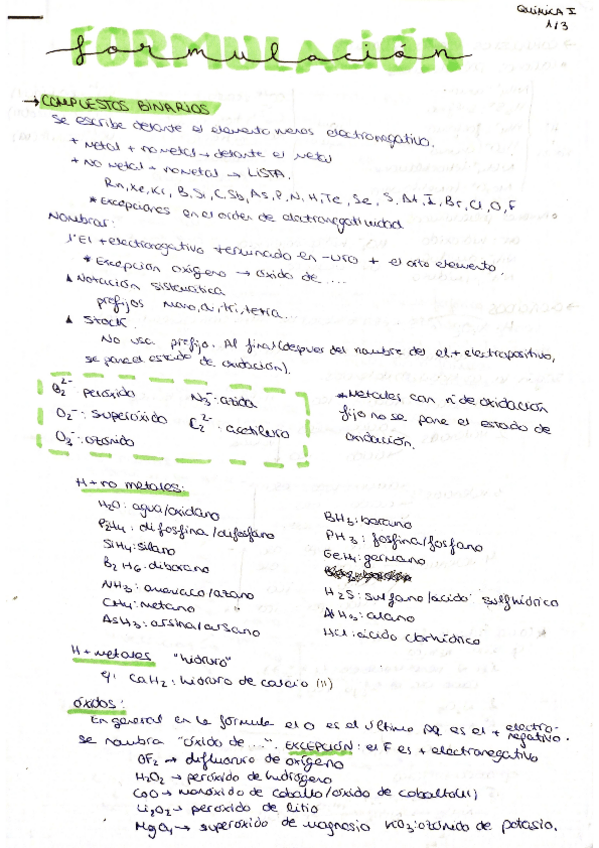 QUÍMICA I
1/3
FORMULACIÓN
formulación
→ COMPUESTOS BINARIOS
Se escribe delante el elemento menos electronegativo.
* Metal + no metal → delante el metal
* No metal + no metal → LISTA.
Rn, Xe, Kr, B, Si, C, Sb, As, P, N, H, Te, Se, S, At, I, Br, Cl, O, F
* Excepciones en el orden de electronegatividad
Nombrar:
1º El + electronegativo terminado en -uro + el otro elemento.
* Excepción oxígeno → óxido de ...
▲ Notación sistemática
prefijos mono, di, tri, tetra...
▲ Stock.
No usa prefijo. Al final (después del nombre del el. + electropositivo,
se pone el estado de oxidación).
O₂²⁻: peróxido
N₃⁻: azida
O₂⁻: superóxido
C₂²⁻: acetiluro
O₃⁻: ozónido
* Metales con nº de oxidación
fijo no se pone el estado de
oxidación.
H + no metales:
H₂O: agua/oxidano
P₂H₄: difosfina/difosfano
SiH₄: silano
B₂H₆: diborano
NH₃: amoniaco/azano
CH₄: metano
AsH₃: arsina/arsano
BH₃: borano
PH₃: fosfina/fosfano
GeH₄: germano
H₂S: sulfano/ácido sulfhídrico
AlH₃: alano
HCl: ácido clorhídrico
H + metales "hidruro"
ej: CaH₂: hidruro de calcio (II)
óxidos:
En general en la fórmula el O es el último pq es el + electro-
negativo.
Se nombra "óxido de ...". EXCEPCIÓN: el F es + electronegativo
OF₂ → difluoruro de oxígeno
H₂O₂ → peróxido de hidrógeno
CoO → monóxido de cobalto/óxido de cobalto (II)
Li₂O₂ → peróxido de litio
MgO₄ → superóxido de magnesio KO₃: ozónido de potasio.